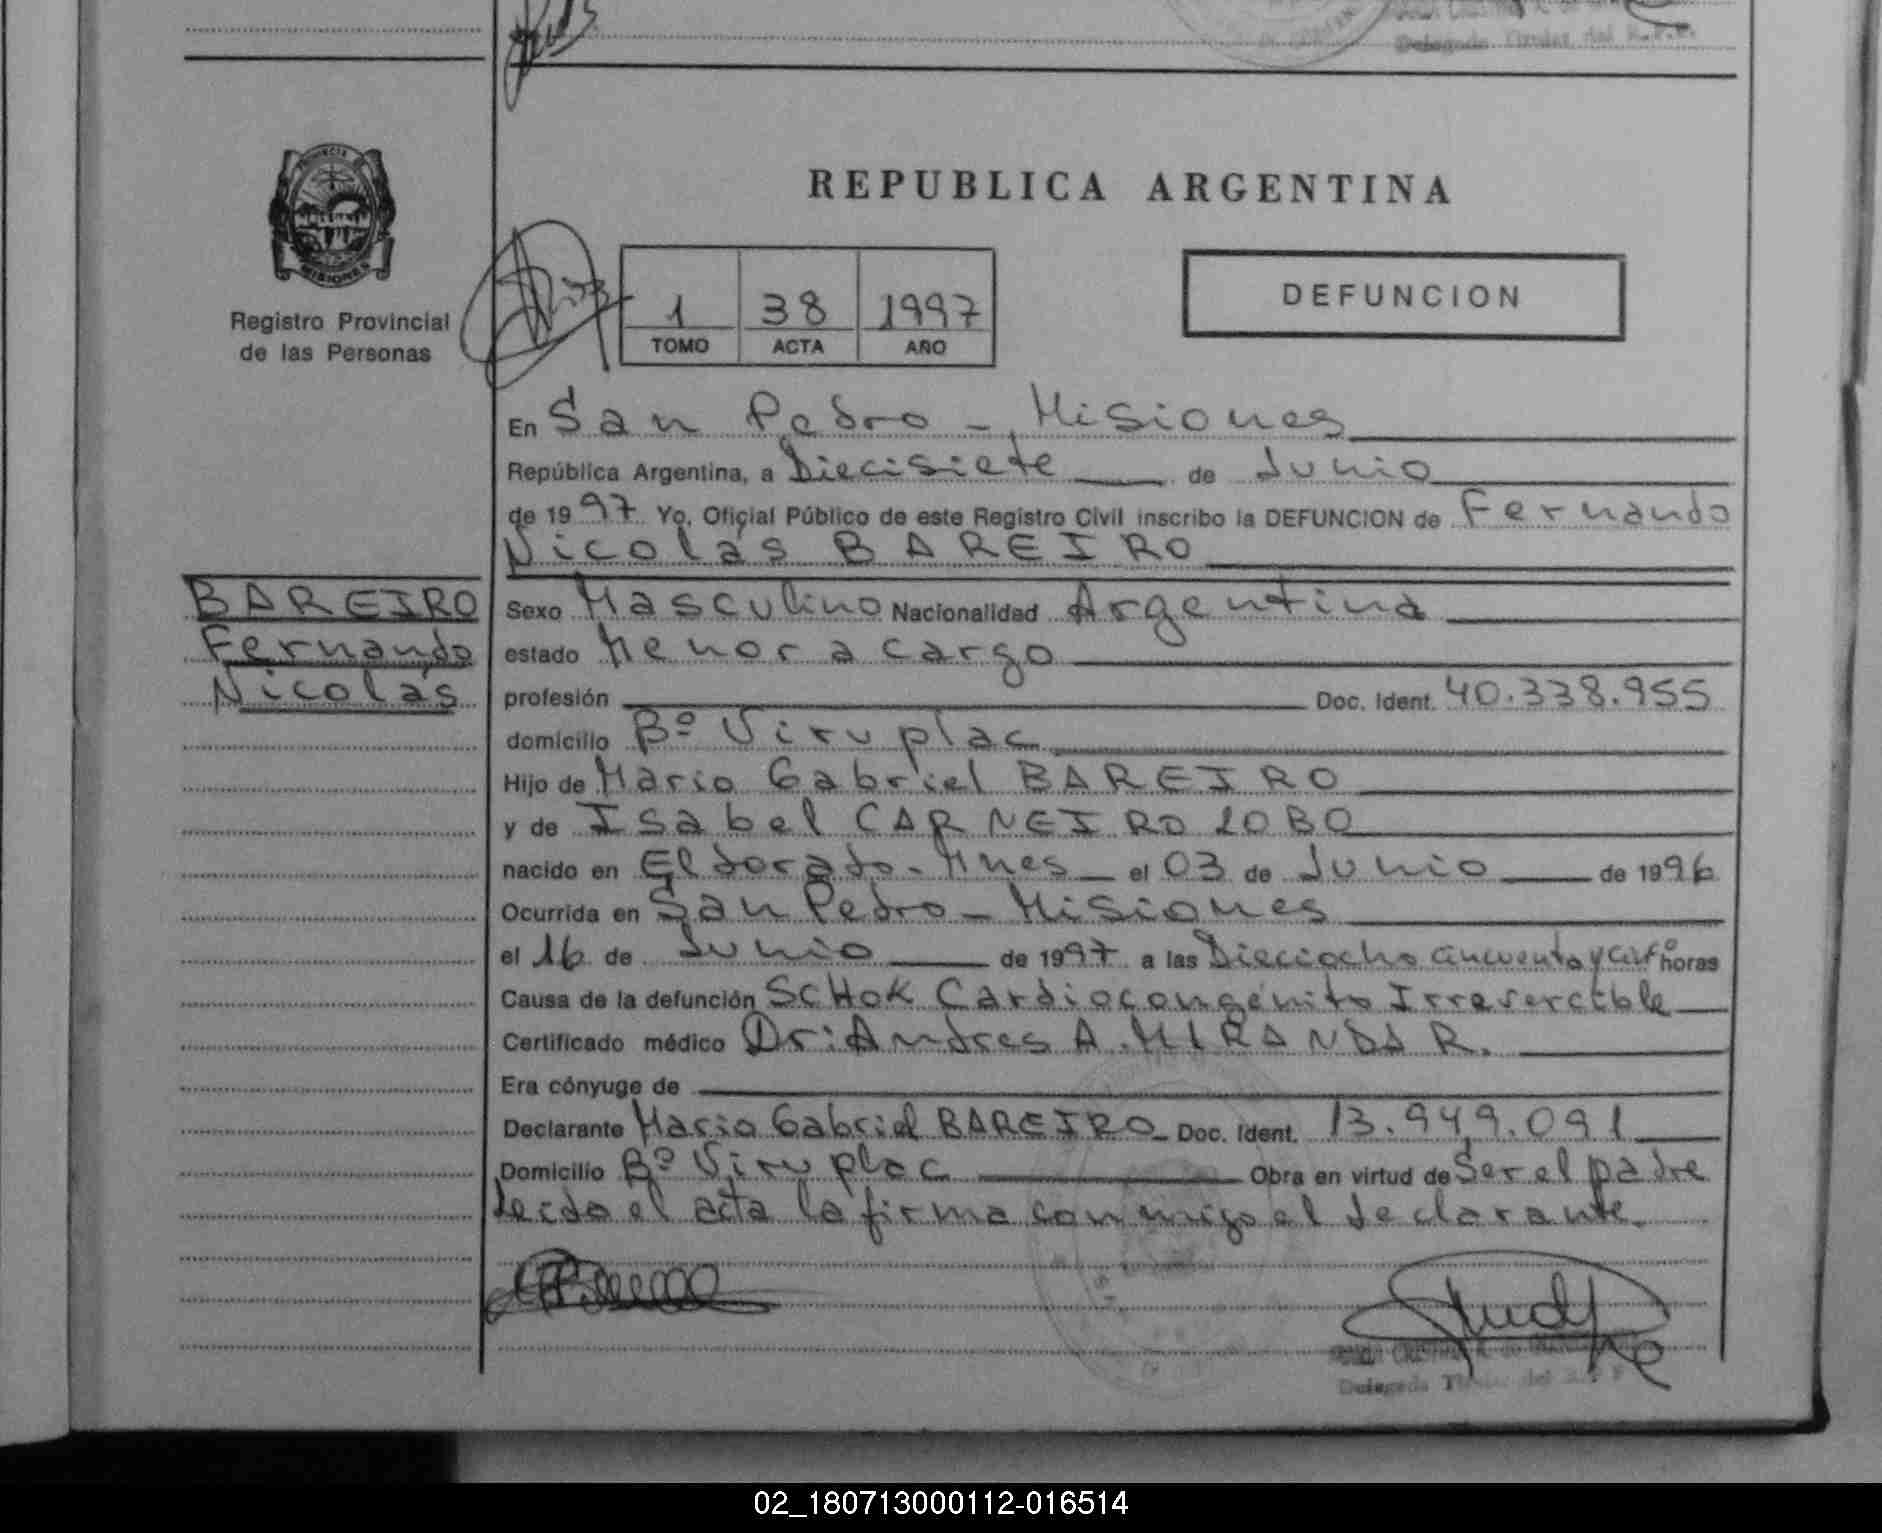 Delegada Titular del R.P.P.
PROVINCIA DE
MISIONES
Registro Provincial
de las Personas
REPUBLICA ARGENTINA
1 38 1997
TOMO ACTA AÑO
DEFUNCION
En San Pedro - Misiones
República Argentina, a Diecisiete de Junio
de 1997 Yo, Oficial Público de este Registro Civil inscribo la DEFUNCION de Fernando
Nicolás BAREIRO
BAREIRO
Fernando
Nicolás
Sexo Masculino Nacionalidad Argentina
estado Menor a cargo
profesión Doc. Ident. 40.338.955
domicilio Bº Viru plac
Hijo de Mario Gabriel BAREIRO
y de Isabel CARNEIRO LOBO
nacido en Eldorado - Mnes el 03 de Junio de 1996
Ocurrida en San Pedro - Misiones
el 16 de Junio de 1997 a las Dieciocho cincuenta y horas
Causa de la defunción SCHOK Cardiocongénito
Certificado médico Dr: Andres A. MIRANDA R.
Era cónyuge de
Declarante Mario Gabriel BAREIRO Doc. Ident. 13.949.091
Domicilio Bº Viru plac Obra en virtud de Ser el padre
Leida el acta la firma conmigo el declarante.
Delegada Titular del R.P.P
02_180713000112-016514